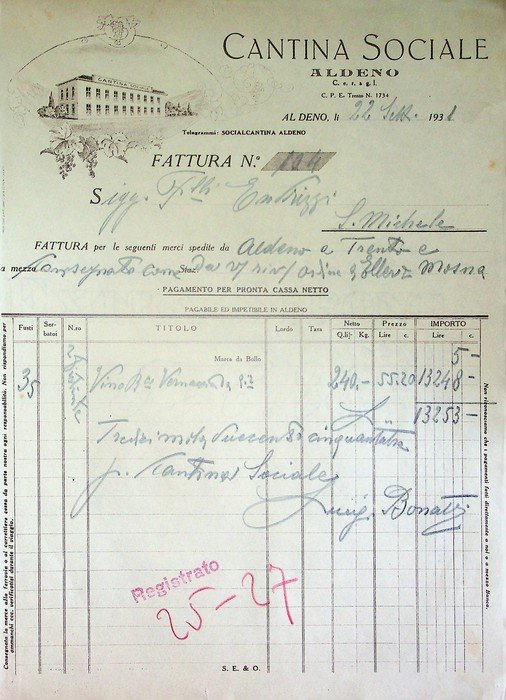 CANTINA SOCIALE
CANTINA SOCIALE
ALDENO
C. e. r. a g. l.
C. P. E. Trento N. 1734
ALDENO, li 22 Sett. 1931
Telegrammi: SOCIALCANTINA ALDENO
FATTURA N.° 194
Sigg. F.lli
S. Michele
FATTURA per le seguenti merci spedite da Aldeno a Trento e
a mezzo Consegnato come Staz. da
PAGAMENTO PER PRONTA CASSA NETTO
PAGABILE ED IMPETIBILE IN ALDENO
Fusti Serbatoi N.ro TITOLO Lordo Tara Netto Prezzo IMPORTO
Q.li Kg. Lire c. Lire c.
Marca da Bollo 5 -
35 Vino 240.- 55.20 13248 -
13253 -
Tredicimila duecento cinquantatre
p. Cantina Sociale
Luigi Bonatti
Registrato
25-27
S. E. & O.
Consegnata la merce alla ferrovia o al carrettiere cessa da parte nostra ogni responsabilità. Non rispondiamo per
ammanchi ecc. verificatisi durante il viaggio.
Non riconosciamo che i pagamenti fatti direttamente a noi o a mezzo Banca.